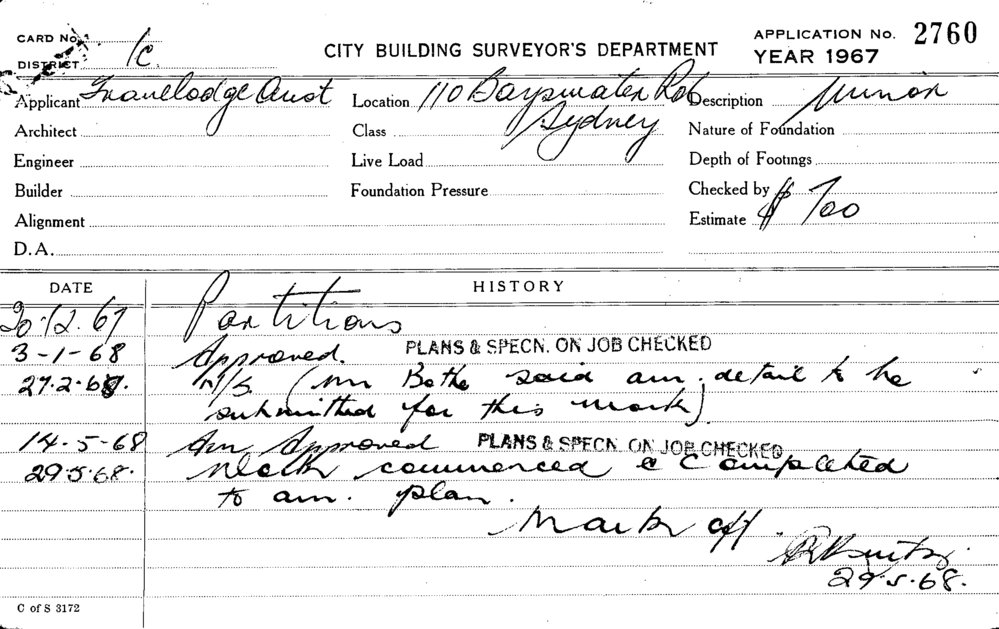 CARD No.
CITY BUILDING SURVEYOR'S DEPARTMENT
APPLICATION No. 2760
YEAR 1967
DISTRICT 1c
Applicant Travelodge Aust Location 110 Bayswater Rd Description Minor
Sydney
Architect Class Nature of Foundation
Engineer Live Load Depth of Footings
Builder Foundation Pressure Checked by
Alignment Estimate $ 700
D.A.
DATE HISTORY
20.12.67 Partitions
3-1-68 Approved. PLANS & SPECN. ON JOB CHECKED
27.2.68. N/S. (Mr Bothe said am. detail to be
submitted for this work)
14.5-68 Am Approved PLANS & SPECN. ON JOB CHECKED
29.5.68. Work commenced & Completed
to am. plan.
Mark off.
29.5.68.
C of S 3172